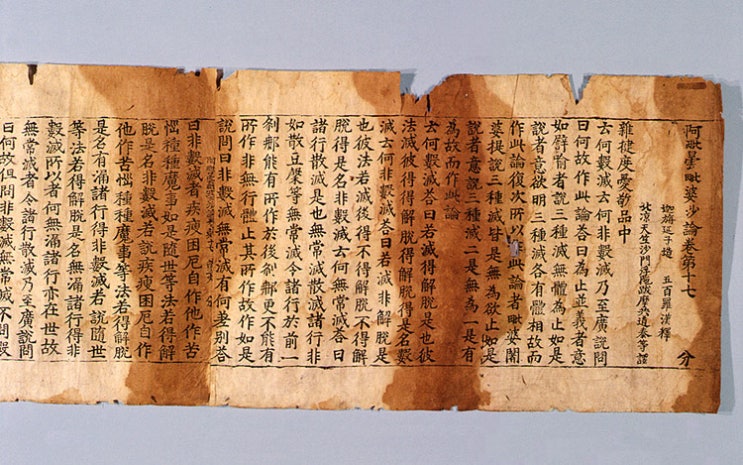 阿毗曇毗婆沙論卷第十七 分
迦旃延子造 五百羅漢釋
北涼天竺沙門浮陁跋摩共道泰等譯
雜揵度愛敬品中
云何數滅云何非數滅乃至廣說問
曰何故作此論荅曰為止並義者意
如譬喻者說三種滅無體為止如是
說者意欲明三種滅各有體相故而
作此論復次所以作此論者毗婆闍
婆提說三種滅皆是無為欲止如是
說者意說三種滅二是無為一是有
為故而作此論
云何數滅荅曰若滅得解脫是也彼
法滅彼得得解脫得解脫得是名數
滅云何非數滅荅曰若滅非解脫是
也彼法若滅後得不得解脫不得解
脫得是名非數滅云何無常滅荅曰
諸行散滅是也無常滅散滅諸行
如散豆聚等無常滅令諸行於前一
剎那能有所作於後剎那更不能有
所作非無行體止其所作故作如是
說問曰非數滅無常滅有何差別荅
曰非數滅者疾疫困厄自作他作苦
惱種種魔事如是隨世等法若得解
脫是名非數滅若說疾疫困厄自作
他作苦惱種種魔事等法若得解脫
是名有漏諸行得非數滅若說隨世
等法若得解脫是名無漏諸行得非
數滅所以者何無漏諸行亦在世故
無常滅者令諸行散滅乃至廣說問
曰何故但問非數滅無常滅不問數